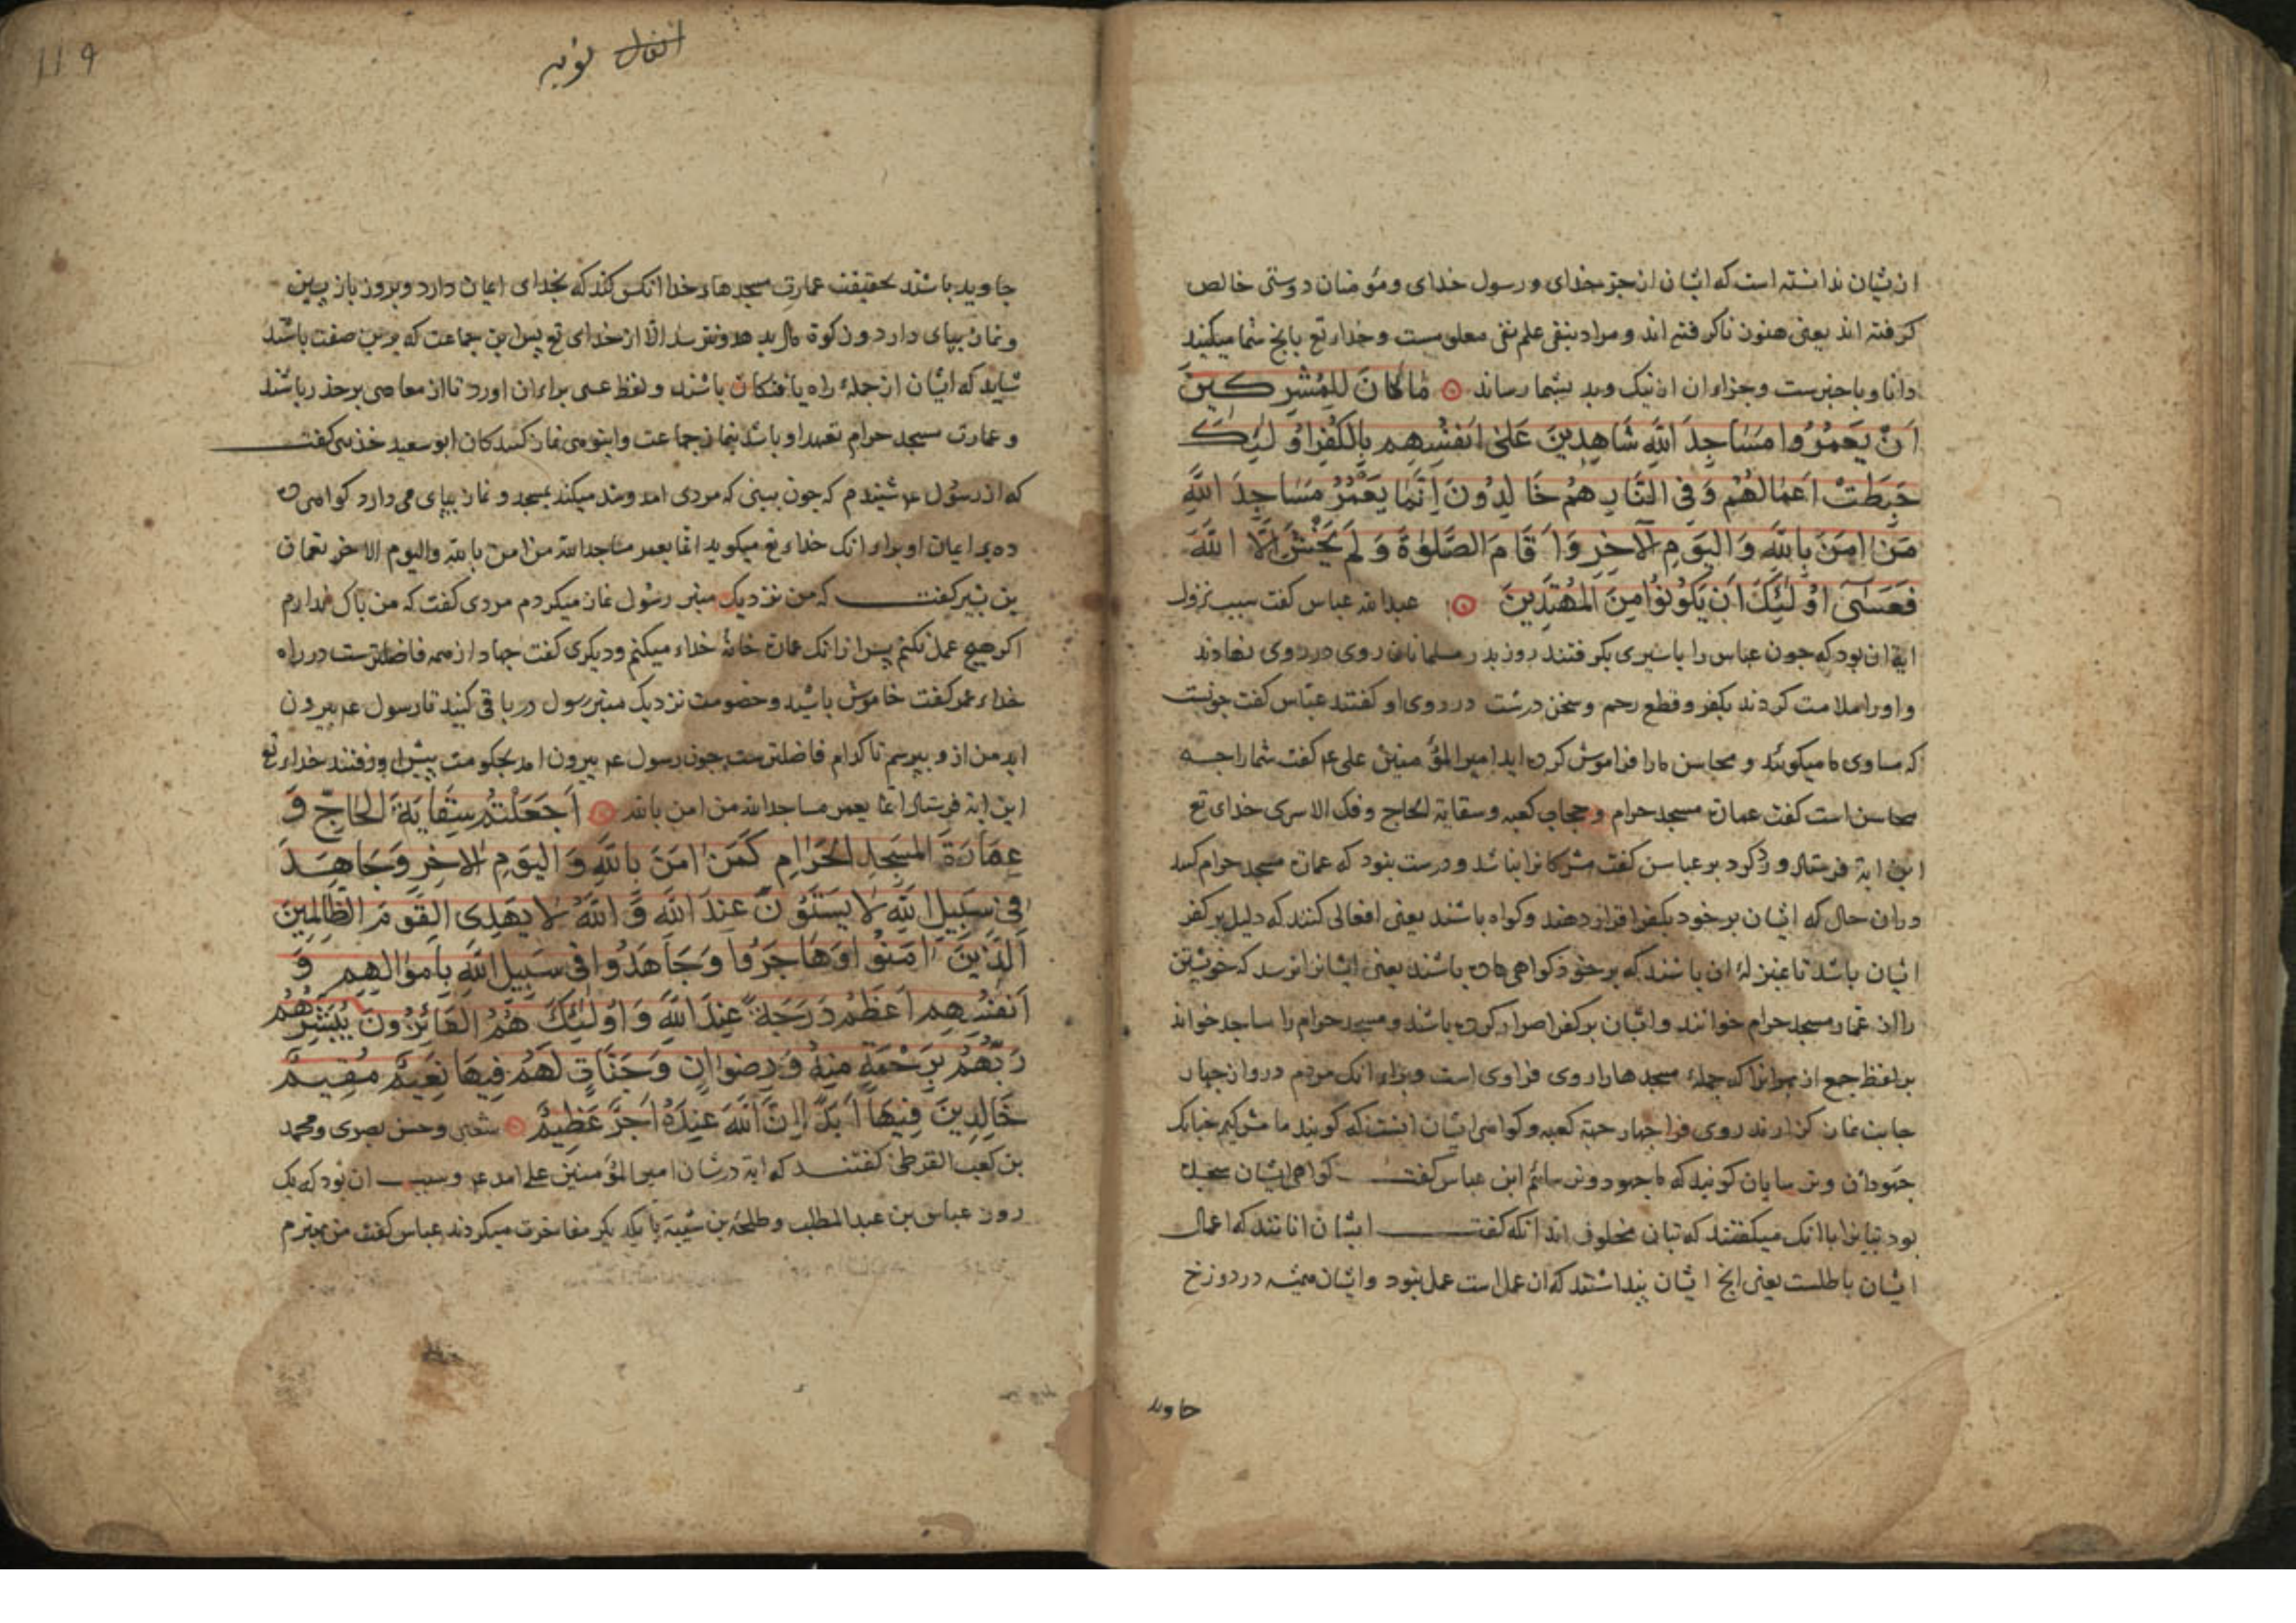 از شان ندانسته است که ایشان از جز خدای و رسول خدای و مؤمنان دوستی خالص
کرفته اند یعنی هنوز ناکرفته اند و مراد بنفی علم نفی معلومست و خدای تع بانج شما میکنید
دانا و با خبرست و جزاء ان از نیک و بد بشما رساند مَا كَانَ لِلْمُشْرِكِينَ
اَنْ يَعْمُرُوا مَسَاجِدَ اللَّهِ شَاهِدِينَ عَلَى اَنْفُسِهِم بِالْكُفْرِ اُولٰئِكَ
حَبِطَتْ اَعْمَالُهُمْ وَفِي النَّارِ هُمْ خَالِدُونَ اِنَّمَا يَعْمُرُ مَسَاجِدَ اللَّهِ
مَنْ اٰمَنَ بِاللَّهِ وَالْيَوْمِ الْآخِرِ وَاَقَامَ الصَّلٰوةَ وَلَمْ يَخْشَ اِلَّا اللَّهَ
فَعَسَىٰ اُولٰئِكَ اَنْ يَكُونُوا مِنَ الْمُهْتَدِينَ عبدالله عباس کفت سبب نزول
ایة ان بود که جون عباس را باسیری بکرفتند روز بدر مسلمانان روی در روی نهادند
و اورا ملامت کردند بکفر و قطع رحم و سخن درشت در روی او کفتند عباس کفت جونست
که مساوی ما میکوئید و محاسن مارا فراموش کرده اید امیر المؤمنین علی ع کفت شما را جه
محاسن است کفت عمارة مسجد حرام و حجاب کعبه و سقایة الحاج و فک الاسری خدای تع
این ایة فرستاد و رد کرد بر عباس کفت مشرکانرا نباشد و درست نبود که عمارة مسجد حرام کنند
در ان حال که ایشان بر خود بکفر اقرار دهند و کواه باشند یعنی افعالی کنند که دلیل بر کفر
ایشان باشد تا بمنزلة ان باشند که بر خود کواهی داده باشند یعنی ایشانرا نرسد که خویشتن
را از عمار مسجد حرام خوانند و ایشان بر کفر اصرار کرده باشند و مسجد حرام را مساجد خواند
بر لفظ جمع از برانرا که جملة مسجدها را روی فراوی است و براء انک مردم در و از جهار
جانب نماز کزارند روی فرا جهار جهة کعبه و کواهی ایشان انست که کویند ما مشرکیم جنانک
جهودان و ترسایان کویند که ما جهود و ترسائیم ابن عباس کفت کواهی ایشان سجده
بود بتانرا باانک میکفتند که بتان مخلوق اند انکه کفت ایشان انانند که اعمال
ایشان باطلست یعنی انج ایشان بنداشتند که ان عمل است عمل نبود و ایشان همیشه در دوزخ
جاوید
119
انفال توبه
جاوید باشند بحقیقت عمارت مسجدهاء خدا انکس کند که بخدای ایمان دارد و بروز باز بسین
و نماز ببای دارد و زکوة مال بدهد و نترسد الا از خدای تع بس این جماعت که برین صفت باشند
شاید که ایشان از جملة راه یافتکان باشند و لفظ عسی براء ان اورد تا از معاصی بر حذر باشند
و عمارت مسجد حرام تعهد او باشد بنماز جماعت و انبوهی نماز کنندکان ابو سعید خدری کفت
که از رسول ع شنیدم که جون ببینی که مردی امد و شد میکند بمسجد و نماز ببای می دارد کواهی
ده بر ایمان او براء انک خداء تع میکوید انما یعمر مساجد الله من امن بالله والیوم الاخر نعمان
بن بشیر کفت که من نزدیک منبر رسول نماز میکردم مردی کفت که من باک ندارم
اکر هیچ عمل نکنم بس ازانک عمارة خانة خداء میکنم و دیکری کفت جهاد از همه فاضلترست در راه
خداء عمر کفت خاموش باشید و خصومت نزدیک منبر رسول در باقی کنید تا رسول ع بیرون
اید من ازو ببرسم تا کدام فاضلترست جون رسول ع بیرون امد بحکومت بیش او رفتند خداء تع
این ایة فرستاد انما یعمر مساجد الله من امن بالله اَجَعَلْتُمْ سِقَايَةَ الْحَاجِّ وَ
عِمَارَةَ الْمَسْجِدِ الْحَرَامِ كَمَنْ اٰمَنَ بِاللَّهِ وَالْيَوْمِ الْاٰخِرِ وَجَاهَدَ
فِي سَبِيلِ اللَّهِ لَا يَسْتَوُونَ عِنْدَ اللَّهِ وَاللَّهُ لَا يَهْدِي الْقَوْمَ الظَّالِمِينَ
اَلَّذِينَ اٰمَنُوا وَهَاجَرُوا وَجَاهَدُوا فِي سَبِيلِ اللَّهِ بِاَمْوَالِهِمْ وَ
اَنْفُسِهِمْ اَعْظَمُ دَرَجَةً عِنْدَ اللَّهِ وَاُولٰئِكَ هُمُ الْفَائِزُونَ يُبَشِّرُهُمْ
رَبُّهُمْ بِرَحْمَةٍ مِنْهُ وَرِضْوَانٍ وَجَنَّاتٍ لَهُمْ فِيهَا نَعِيمٌ مُقِيمٌ
خَالِدِينَ فِيهَا اَبَدًا اِنَّ اللَّهَ عِنْدَهُ اَجْرٌ عَظِيمٌ شعبی و حسن بصری و محمد
بن کعب القرظی کفتند که ایة در شان امیر المؤمنین علی امد ع و سبب ان بود که یک
روز عباس بن عبد المطلب و طلحة بن شیبة با یکدیکر مفاخرت میکردند عباس کفت من بهترم